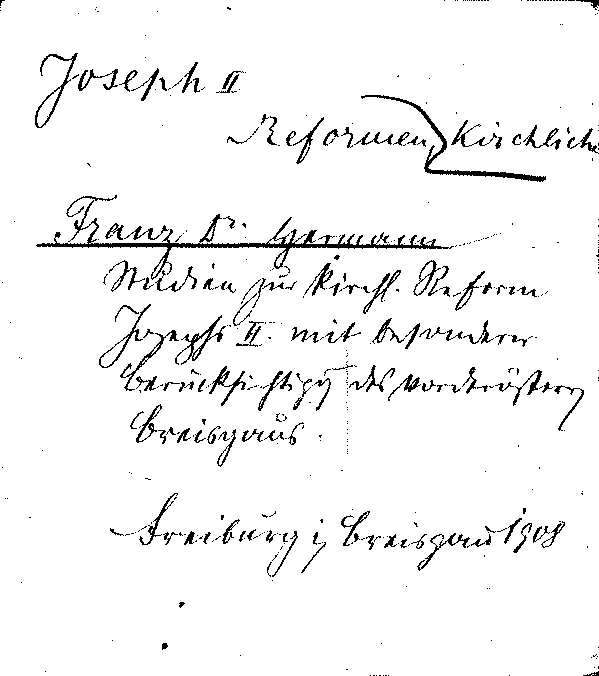 Joseph II
Reformen, Kirchliche
Franz Dr. Hermann
Studien zur kirchl. Reform
Josephs II. mit besonderer
Berücksichtigg des vorderösterr
Breisgaus.
Freiburg i/ Breisgau 1908